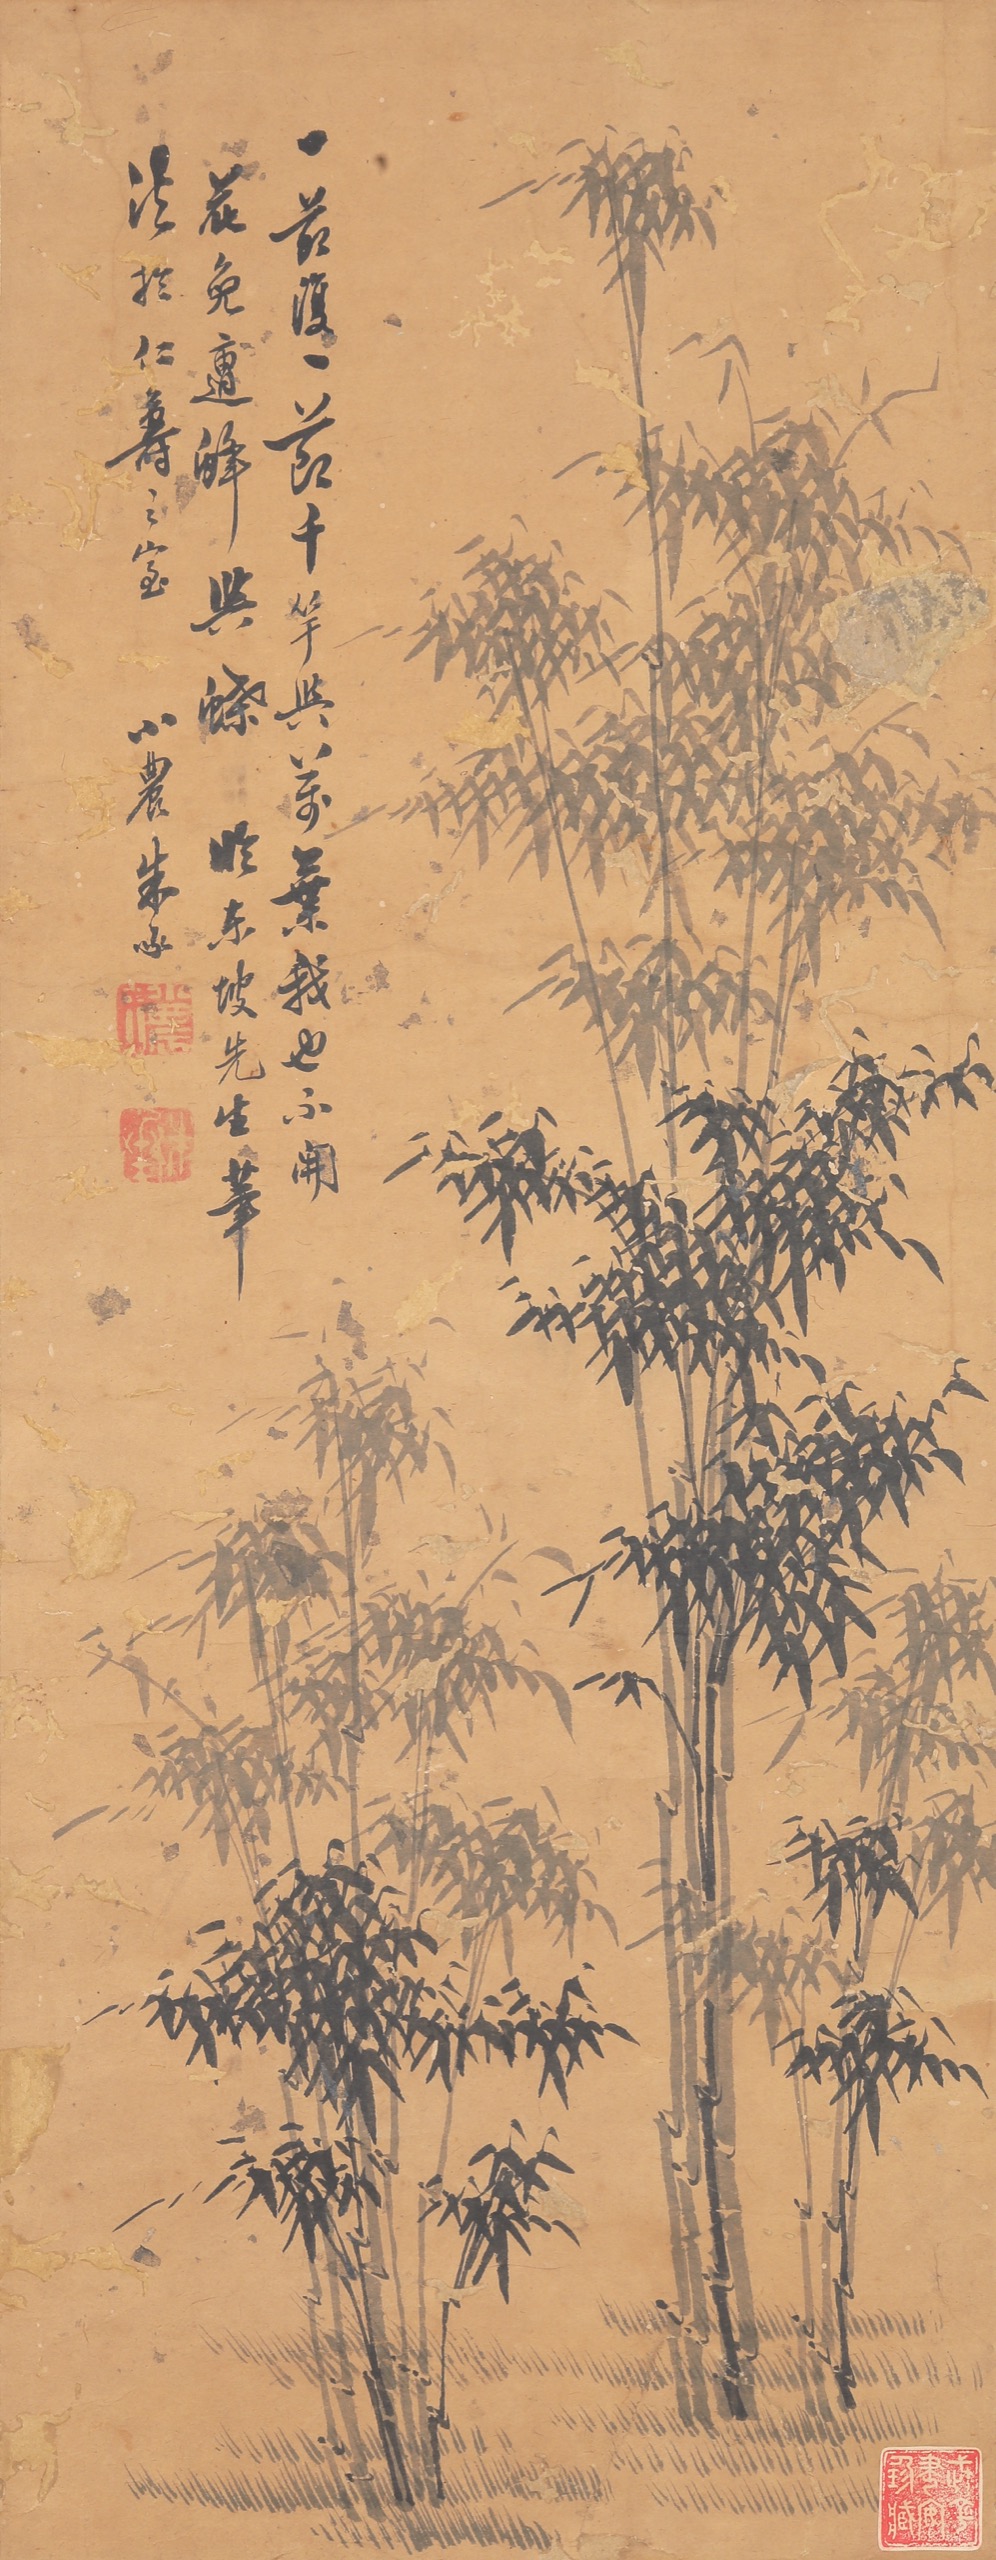 一節復一節千竿與萬葉我也不開
花免遭蜂與蝶 臨東坡先生筆
法於仁壽之室 小農朱承